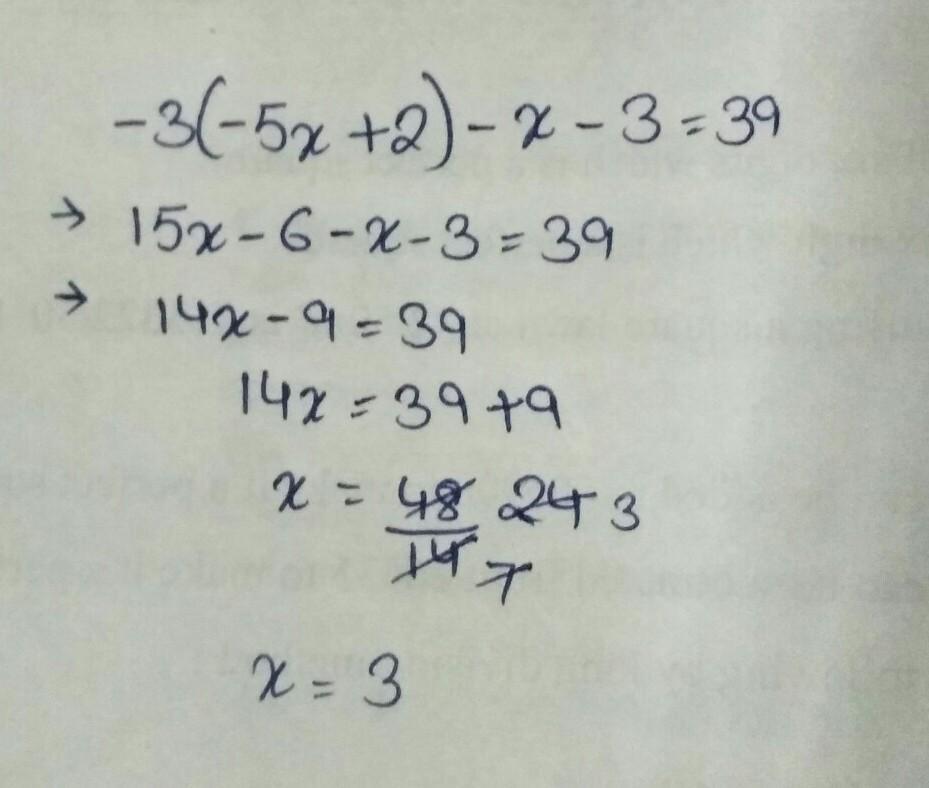 -3(-5x+2)-x-3=39
→ 15x-6-x-3=39
→ 14x-9=39
14x=39+9
x = 48/14 24 3
7
x = 3